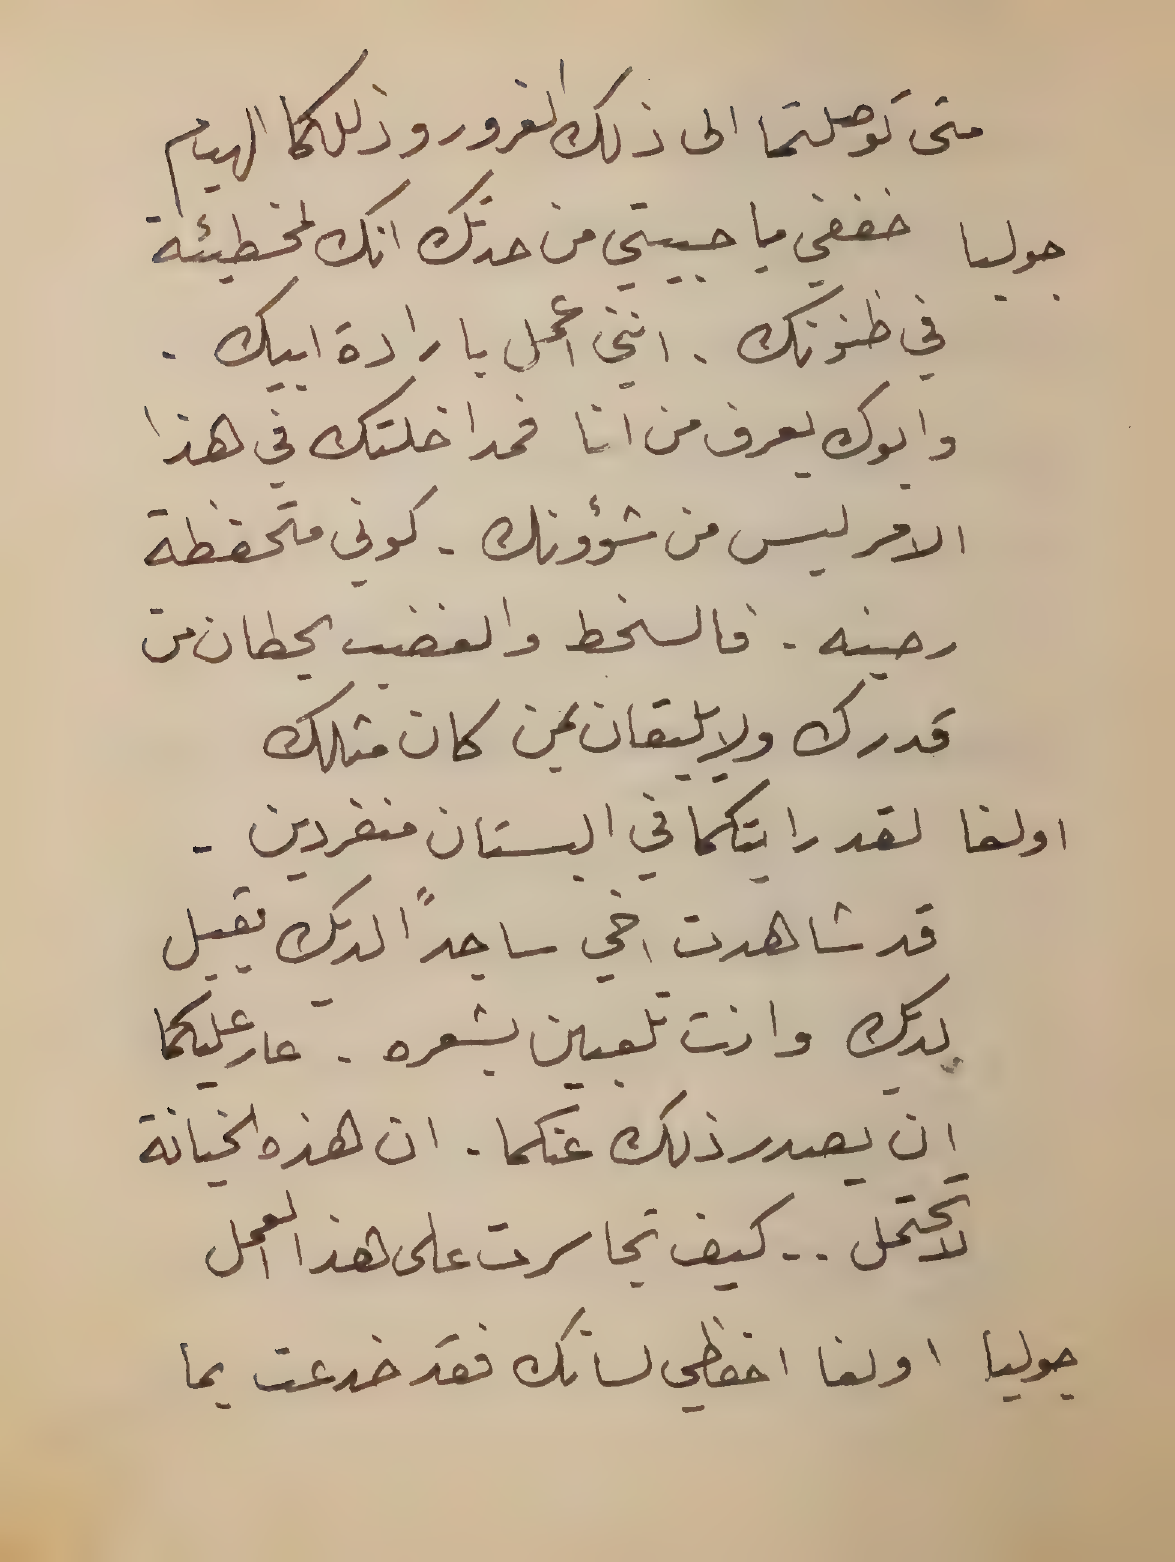 متى توصلتما الى ذلك الغرور وذلكما الهيام
جوليا خففي يا حبيبتي من حدتك انك لمخطيئة
في ظنونك . انني اعمل بارادة ابيك .
وابوك يعرف من انا فمداخلتك في هذا
الامر ليس من شؤونك . كوني متحفظة
رصينه . فالسخط والغضب يحطان من
قدرك ولا يليقان بمن كان مثلك
اولغا لقد رايتكما في البستان منفردين .
قد شاهدت اخي ساجداً لديك يقبل
يديك وانت تلعبين بشعره . عار عليكما
ان يصدر ذلك عنكما . ان هذه الخيانة
لا تحتمل .. كيف تجاسرت على هذا العمل
جوليا اولغا احفظي لسانك فقد خدعت بما